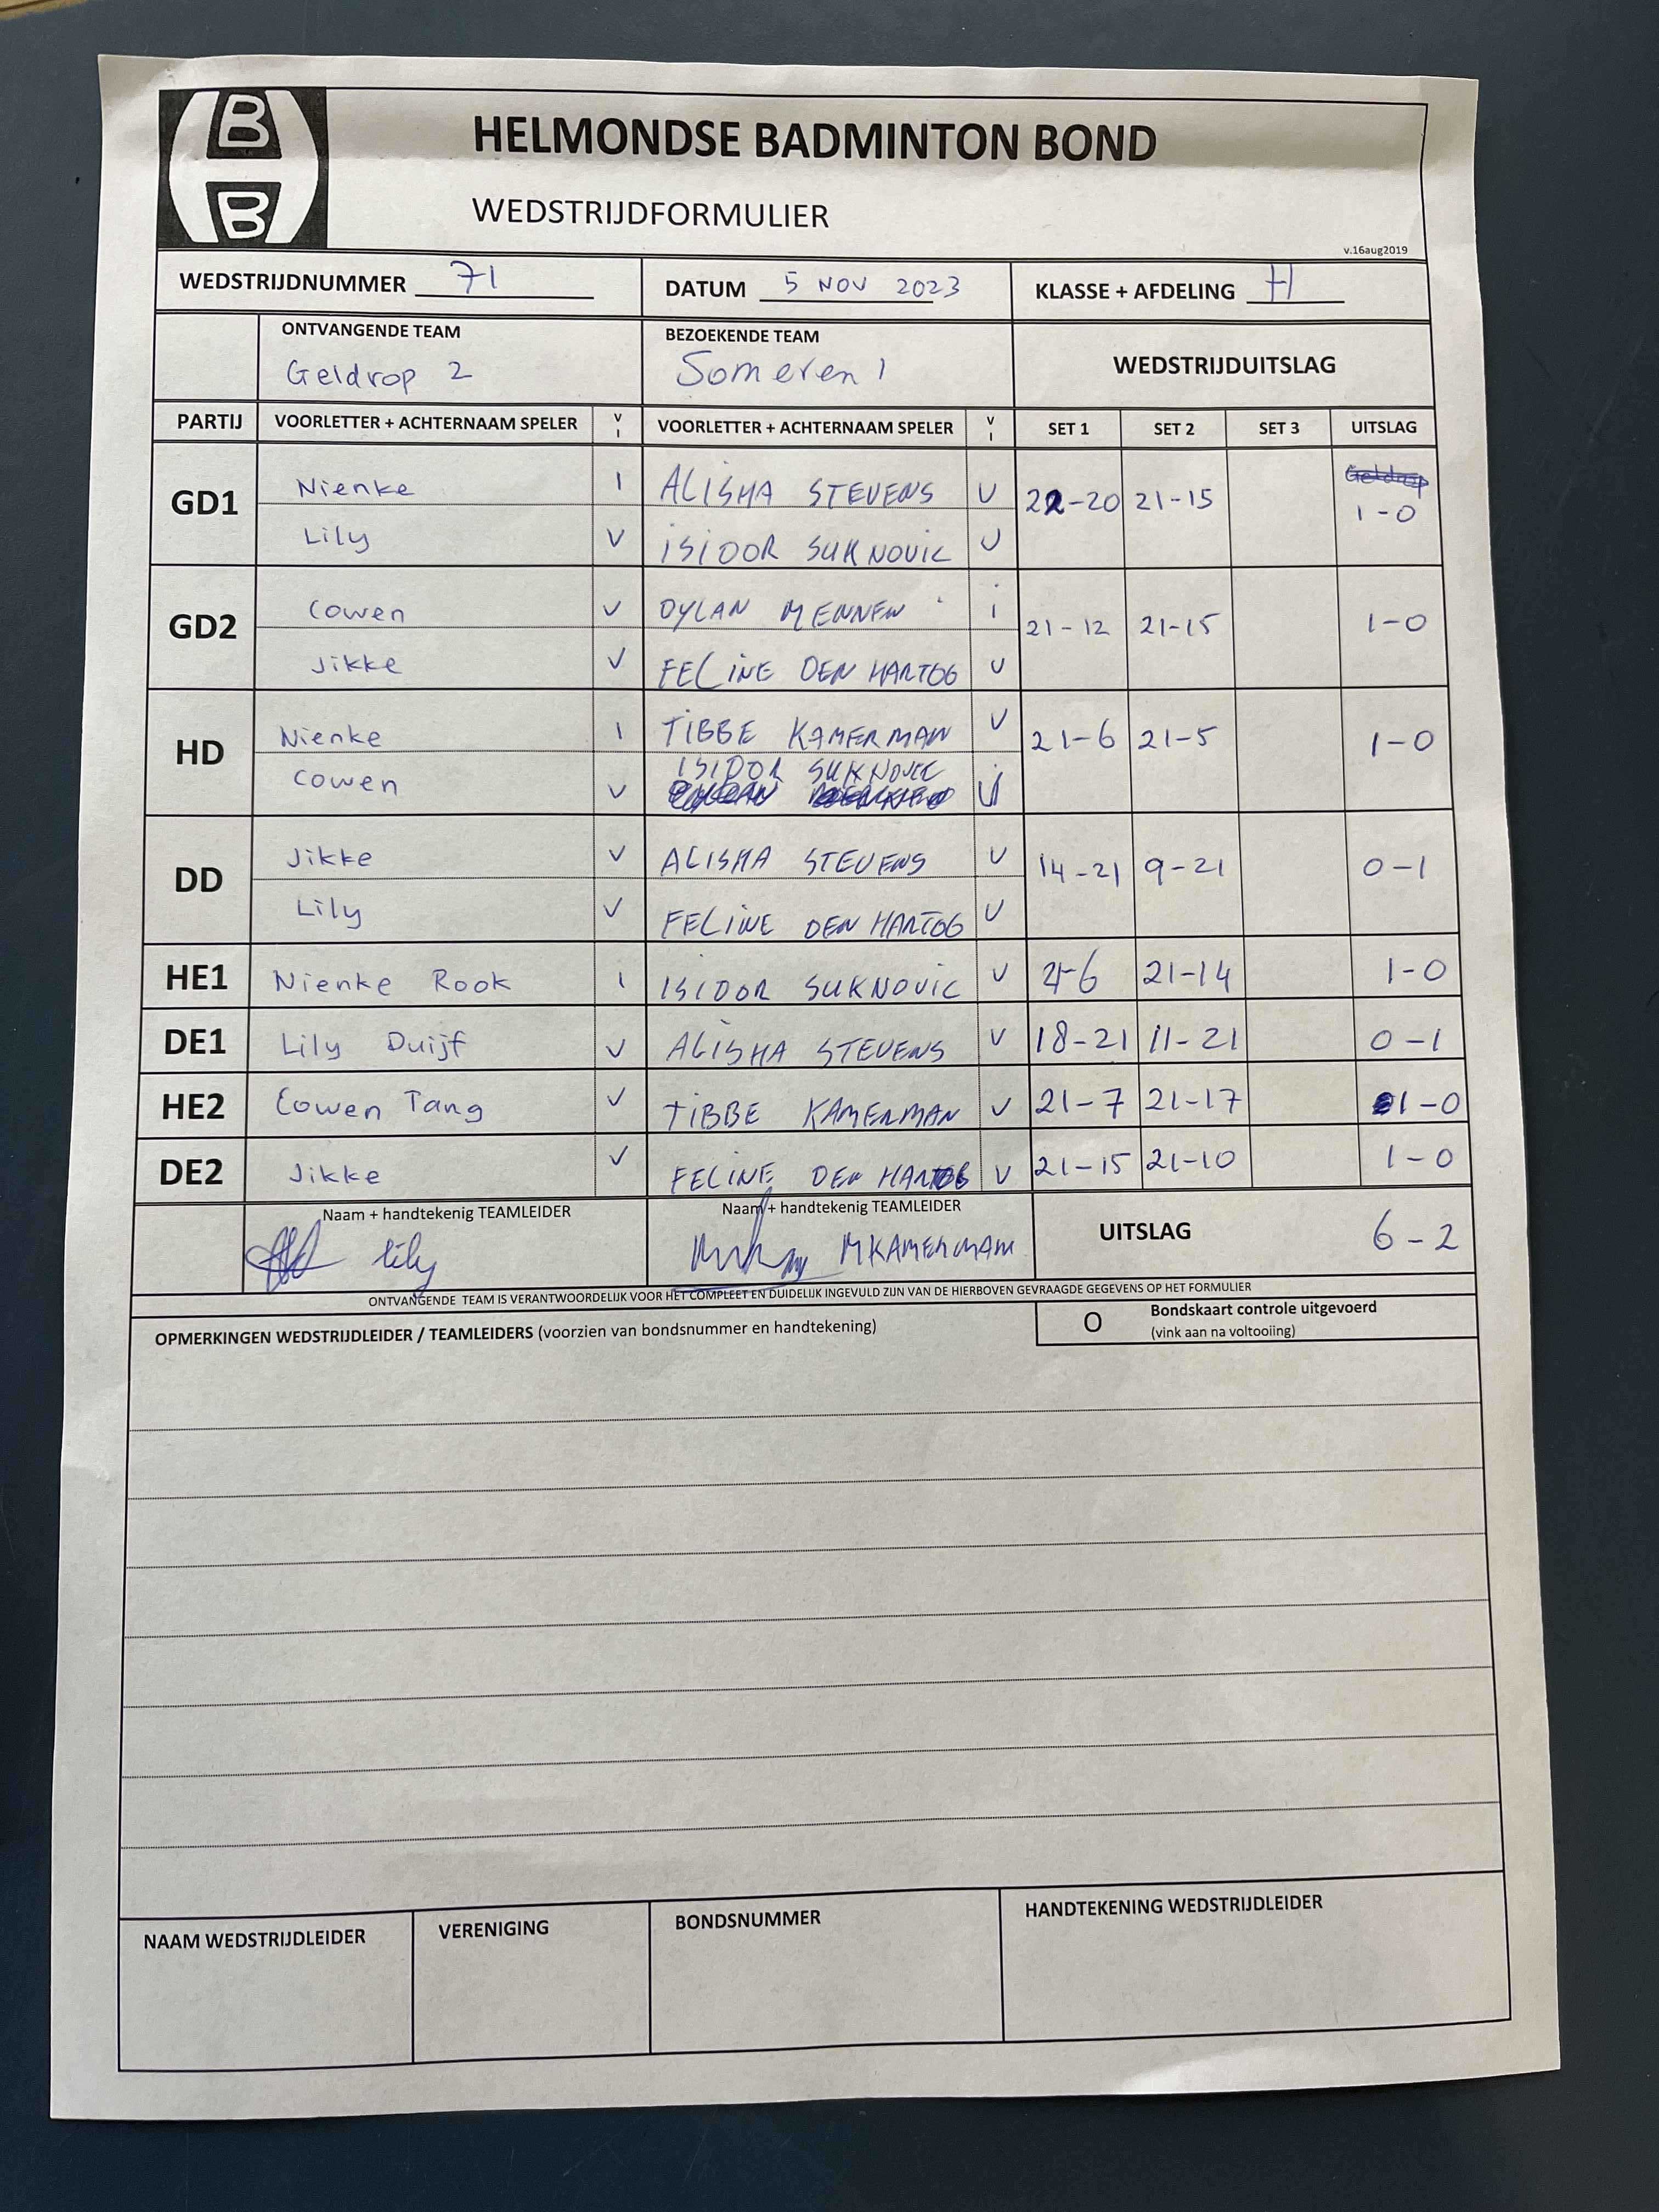 B
B
HELMONDSE BADMINTON BOND
WEDSTRIJDFORMULIER
v.16aug2019
WEDSTRIJDNUMMER 71 DATUM 5 NOV 2023 KLASSE + AFDELING H
ONTVANGENDE TEAM BEZOEKENDE TEAM WEDSTRIJDUITSLAG
Geldrop 2 Someren 1
PARTIJ VOORLETTER + ACHTERNAAM SPELER V I VOORLETTER + ACHTERNAAM SPELER V I SET 1 SET 2 SET 3 UITSLAG
GD1 Nienke I ALISHA STEVENS V 22-20 21-15 Geldrop 1-0
Lily V ISIDOR SUKNOVIC V
GD2 Cowen V DYLAN MENNEN i 21-12 21-15 1-0
Jikke V FELINE DEN HARTOG V
HD Nienke I TIBBE KAMERMAN V 21-6 21-5 1-0
Cowen V ISIDOR SUKNOVIC
DD Jikke V ALISHA STEVENS V 14-21 9-21 0-1
Lily V FELINE DEN HARTOG V
HE1 Nienke Rook I ISIDOR SUKNOVIC V 21-6 21-14 1-0
DE1 Lily Duijf V ALISHA STEVENS V 18-21 11-21 0-1
HE2 Cowen Tang V TIBBE KAMERMAN V 21-7 21-17 1-0
DE2 Jikke V FELINE DEN HARTOG V 21-15 21-10 1-0
Naam + handtekenig TEAMLEIDER Naam + handtekenig TEAMLEIDER UITSLAG 6-2
Lily MKAMERMAN
ONTVANGENDE TEAM IS VERANTWOORDELIJK VOOR HET COMPLEET EN DUIDELIJK INGEVULD ZIJN VAN DE HIERBOVEN GEVRAAGDE GEGEVENS OP HET FORMULIER
OPMERKINGEN WEDSTRIJDLEIDER / TEAMLEIDERS (voorzien van bondsnummer en handtekening) O Bondskaart controle uitgevoerd
(vink aan na voltooiing)
NAAM WEDSTRIJDLEIDER VERENIGING BONDSNUMMER HANDTEKENING WEDSTRIJDLEIDER